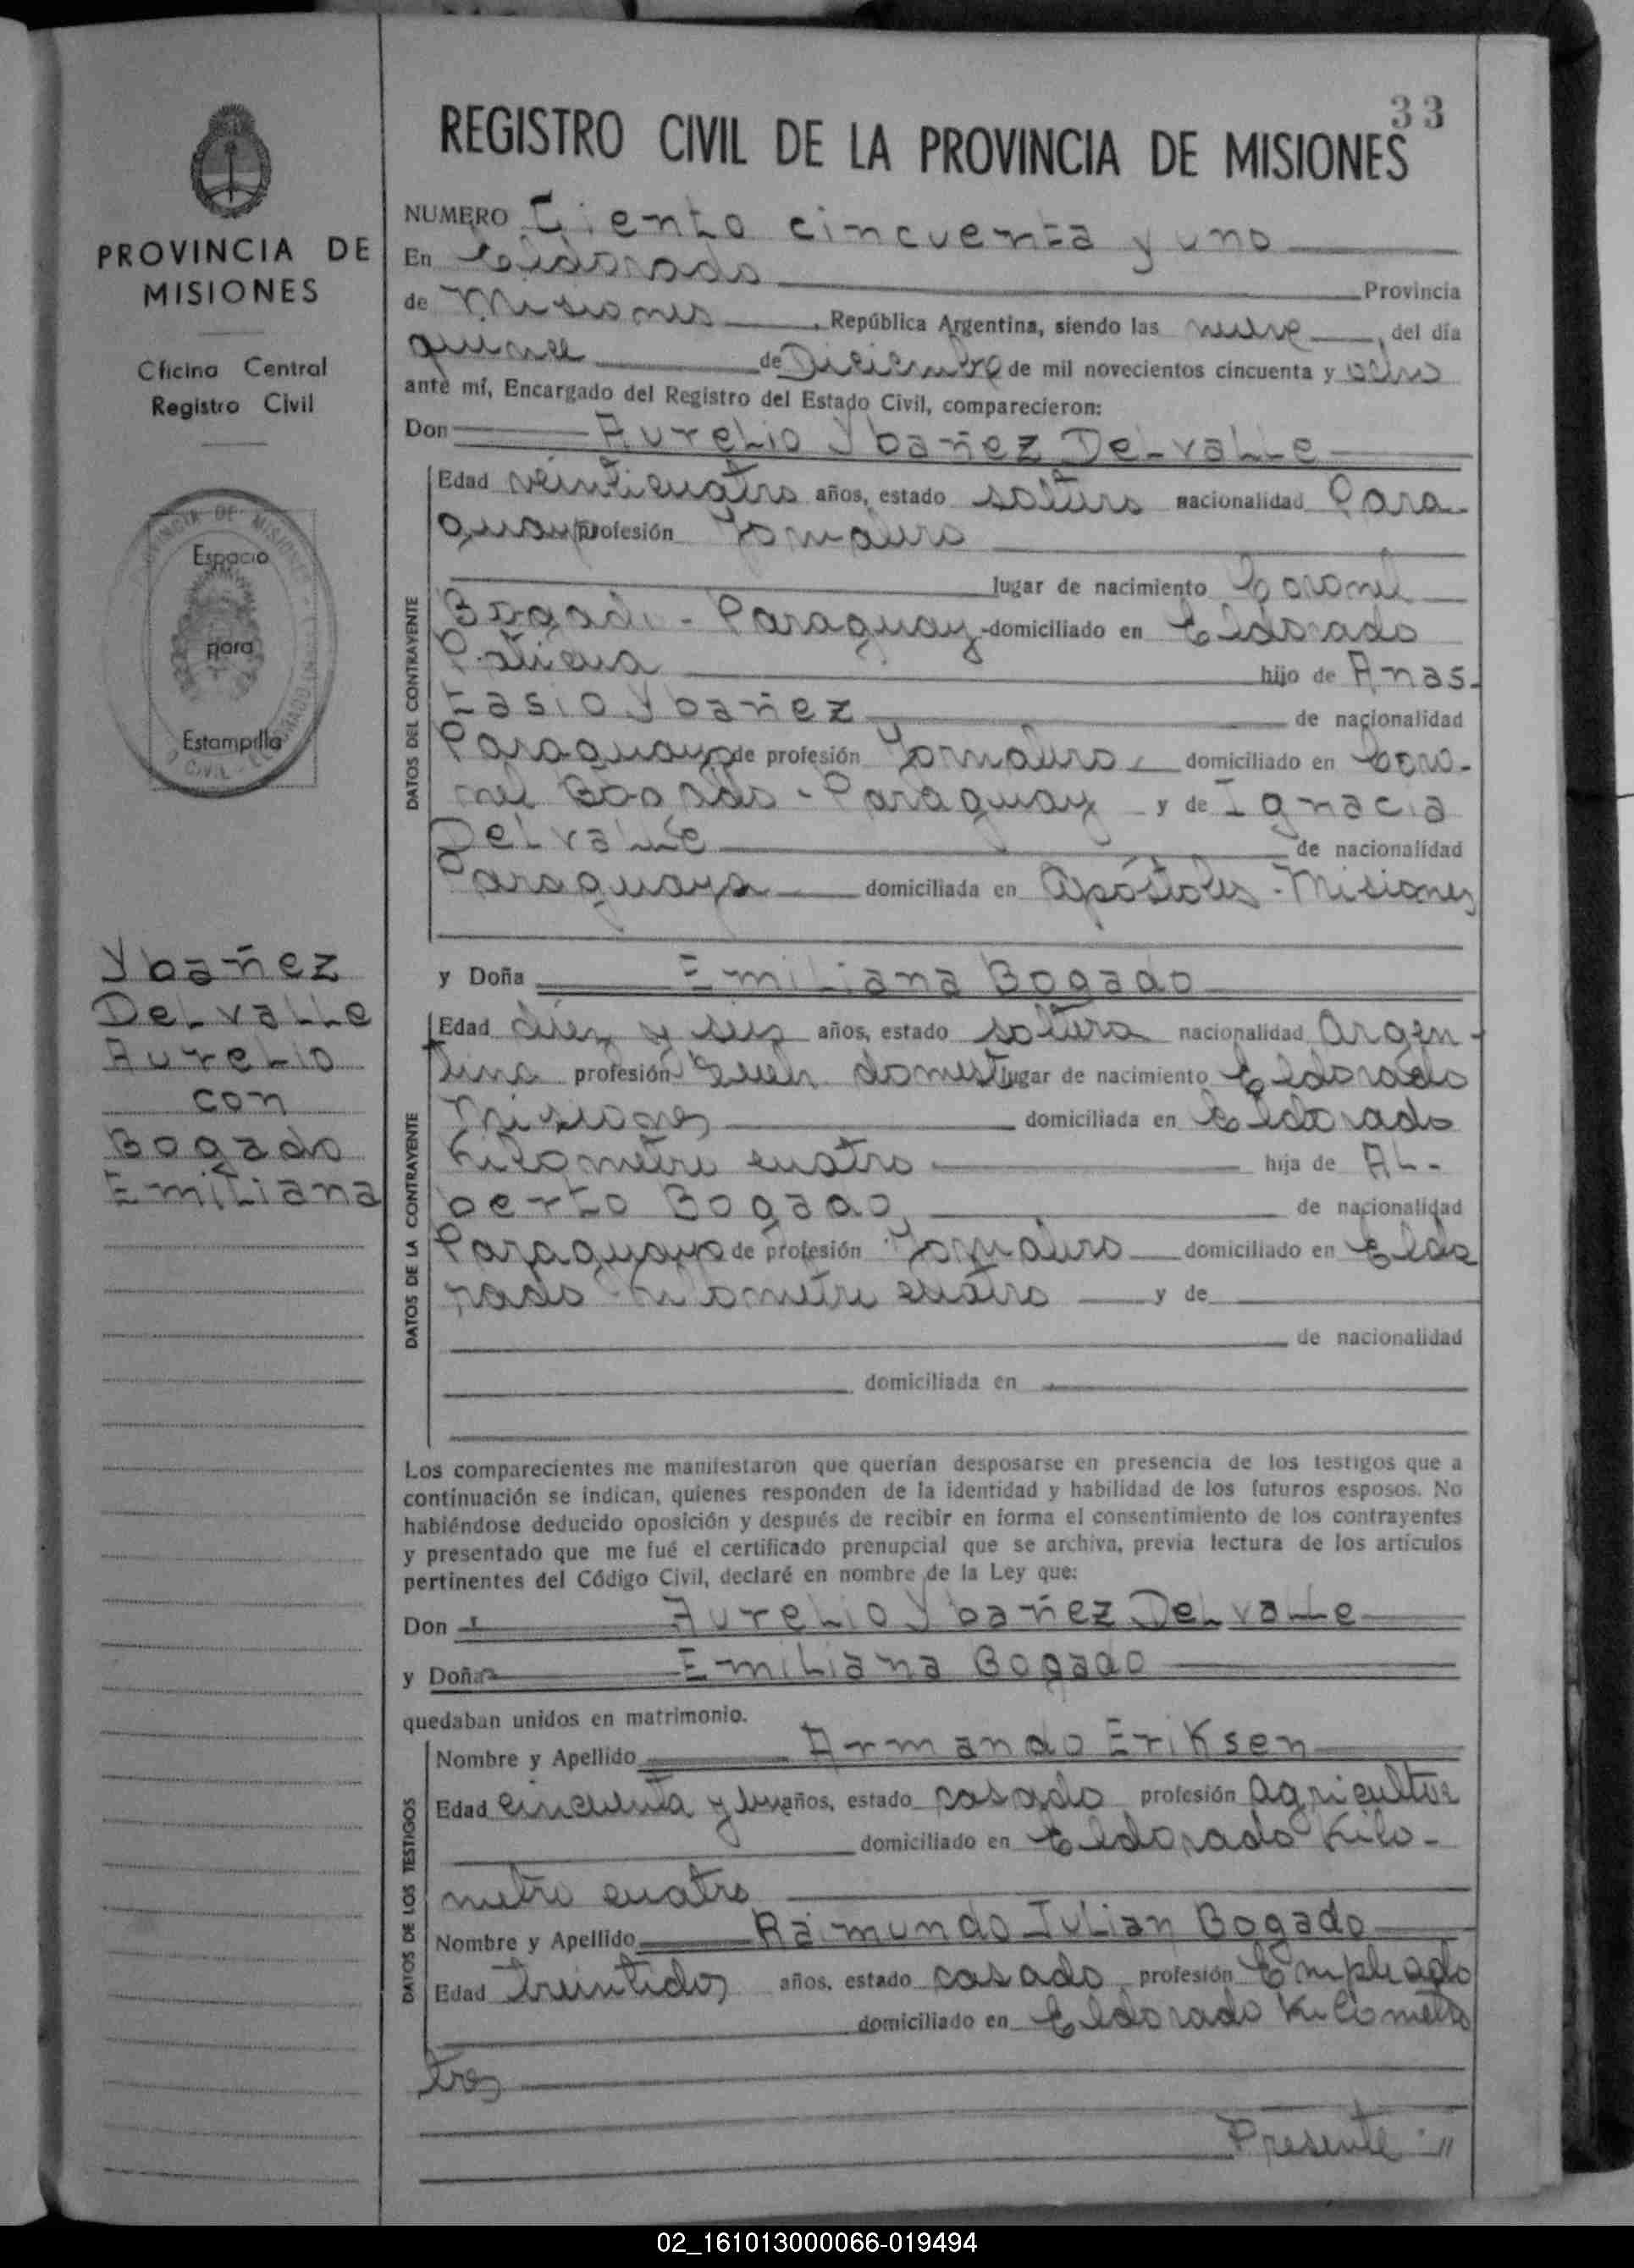 33
REGISTRO CIVIL DE LA PROVINCIA DE MISIONES
PROVINCIA DE
MISIONES
Oficina Central
Registro Civil
Espacio
para
Estampilla
Ybañez
Delvalle
Aurelio
con
Bogado
Emiliana
NUMERO Ciento cincuenta y uno
En Eldorado Provincia
de Misiones, República Argentina, siendo las nueve, del día
quince de Diciembre de mil novecientos cincuenta y ocho
ante mí, Encargado del Registro del Estado Civil, comparecieron:
Don Aurelio Ybañez Delvalle
DATOS DEL CONTRAYENTE
Edad veinticuatro años, estado soltero nacionalidad Para-
guayo profesión Jornalero
lugar de nacimiento Coronel
Bogado - Paraguay - domiciliado en Eldorado
hijo de Anas-
tasio Ybañez de nacionalidad
Paraguayo de profesión Jornalero domiciliado en Coro-
nel Bogado - Paraguay y de Ignacia
Delvalle de nacionalidad
Paraguaya domiciliada en Apóstoles - Misiones
y Doña Emiliana Bogado
DATOS DE LA CONTRAYENTE
Edad diez y seis años, estado soltera nacionalidad Argen-
tina profesión Queh. domest. lugar de nacimiento Eldorado
Misiones domiciliada en Eldorado
Kilometro cuatro hija de Al-
berto Bogado, de nacionalidad
Paraguayo de profesión Jornalero domiciliado en Eldo
rado Kilometro cuatro y de
de nacionalidad
domiciliada en
Los comparecientes me manifestaron que querían desposarse en presencia de los testigos que a
continuación se indican, quienes responden de la identidad y habilidad de los futuros esposos. No
habiéndose deducido oposición y después de recibir en forma el consentimiento de los contrayentes
y presentado que me fué el certificado prenupcial que se archiva, previa lectura de los artículos
pertinentes del Código Civil, declaré en nombre de la Ley que:
Don Aurelio Ybañez Delvalle
y Doña Emiliana Bogado
quedaban unidos en matrimonio.
DATOS DE LOS TESTIGOS
Nombre y Apellido Armando Eriksen
Edad cincuenta y un años, estado casado profesión Agricultor
domiciliado en Eldorado Kilo-
metro cuatro
Nombre y Apellido Raimundo Julian Bogado
Edad treintidos años, estado casado profesión Empleado
domiciliado en Eldorado Kilometro
tres
Presente :,,
02_161013000066-019494